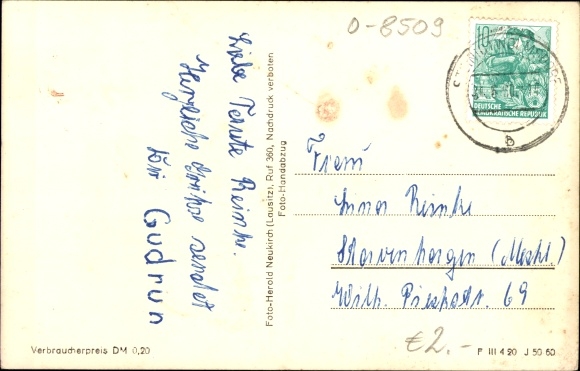 0-8509
Liebe Tante Reinke.
Herzliche Grüße sendet
Dir Gudrun
Foto-Herold Neukirch (Lausitz), Ruf 360, Nachdruck verboten
Foto-Handabzug
10
DEUTSCHE
DEMOKRATISCHE REPUBLIK
b
Frau
Reinke
Stavenhagen (Meckl.)
Wilh. Pieckstr. 69
€2.-
Verbraucherpreis DM 0,20
P III 4 20 J 50 60